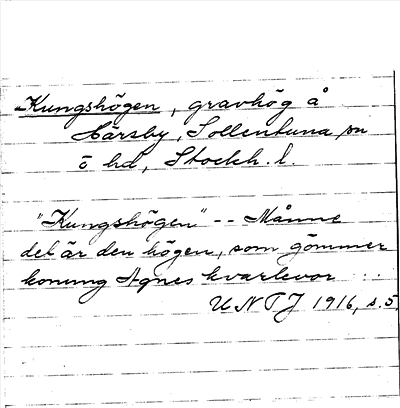 Kungshögen, gravhög å
Kärsby, Sollentuna sn
o hd, Stockh. l.
"Kungshögen" -- Månne
det är den högen, som gömmer
konung Agnes kvarlevor
UNTJ 1916, s. 5.